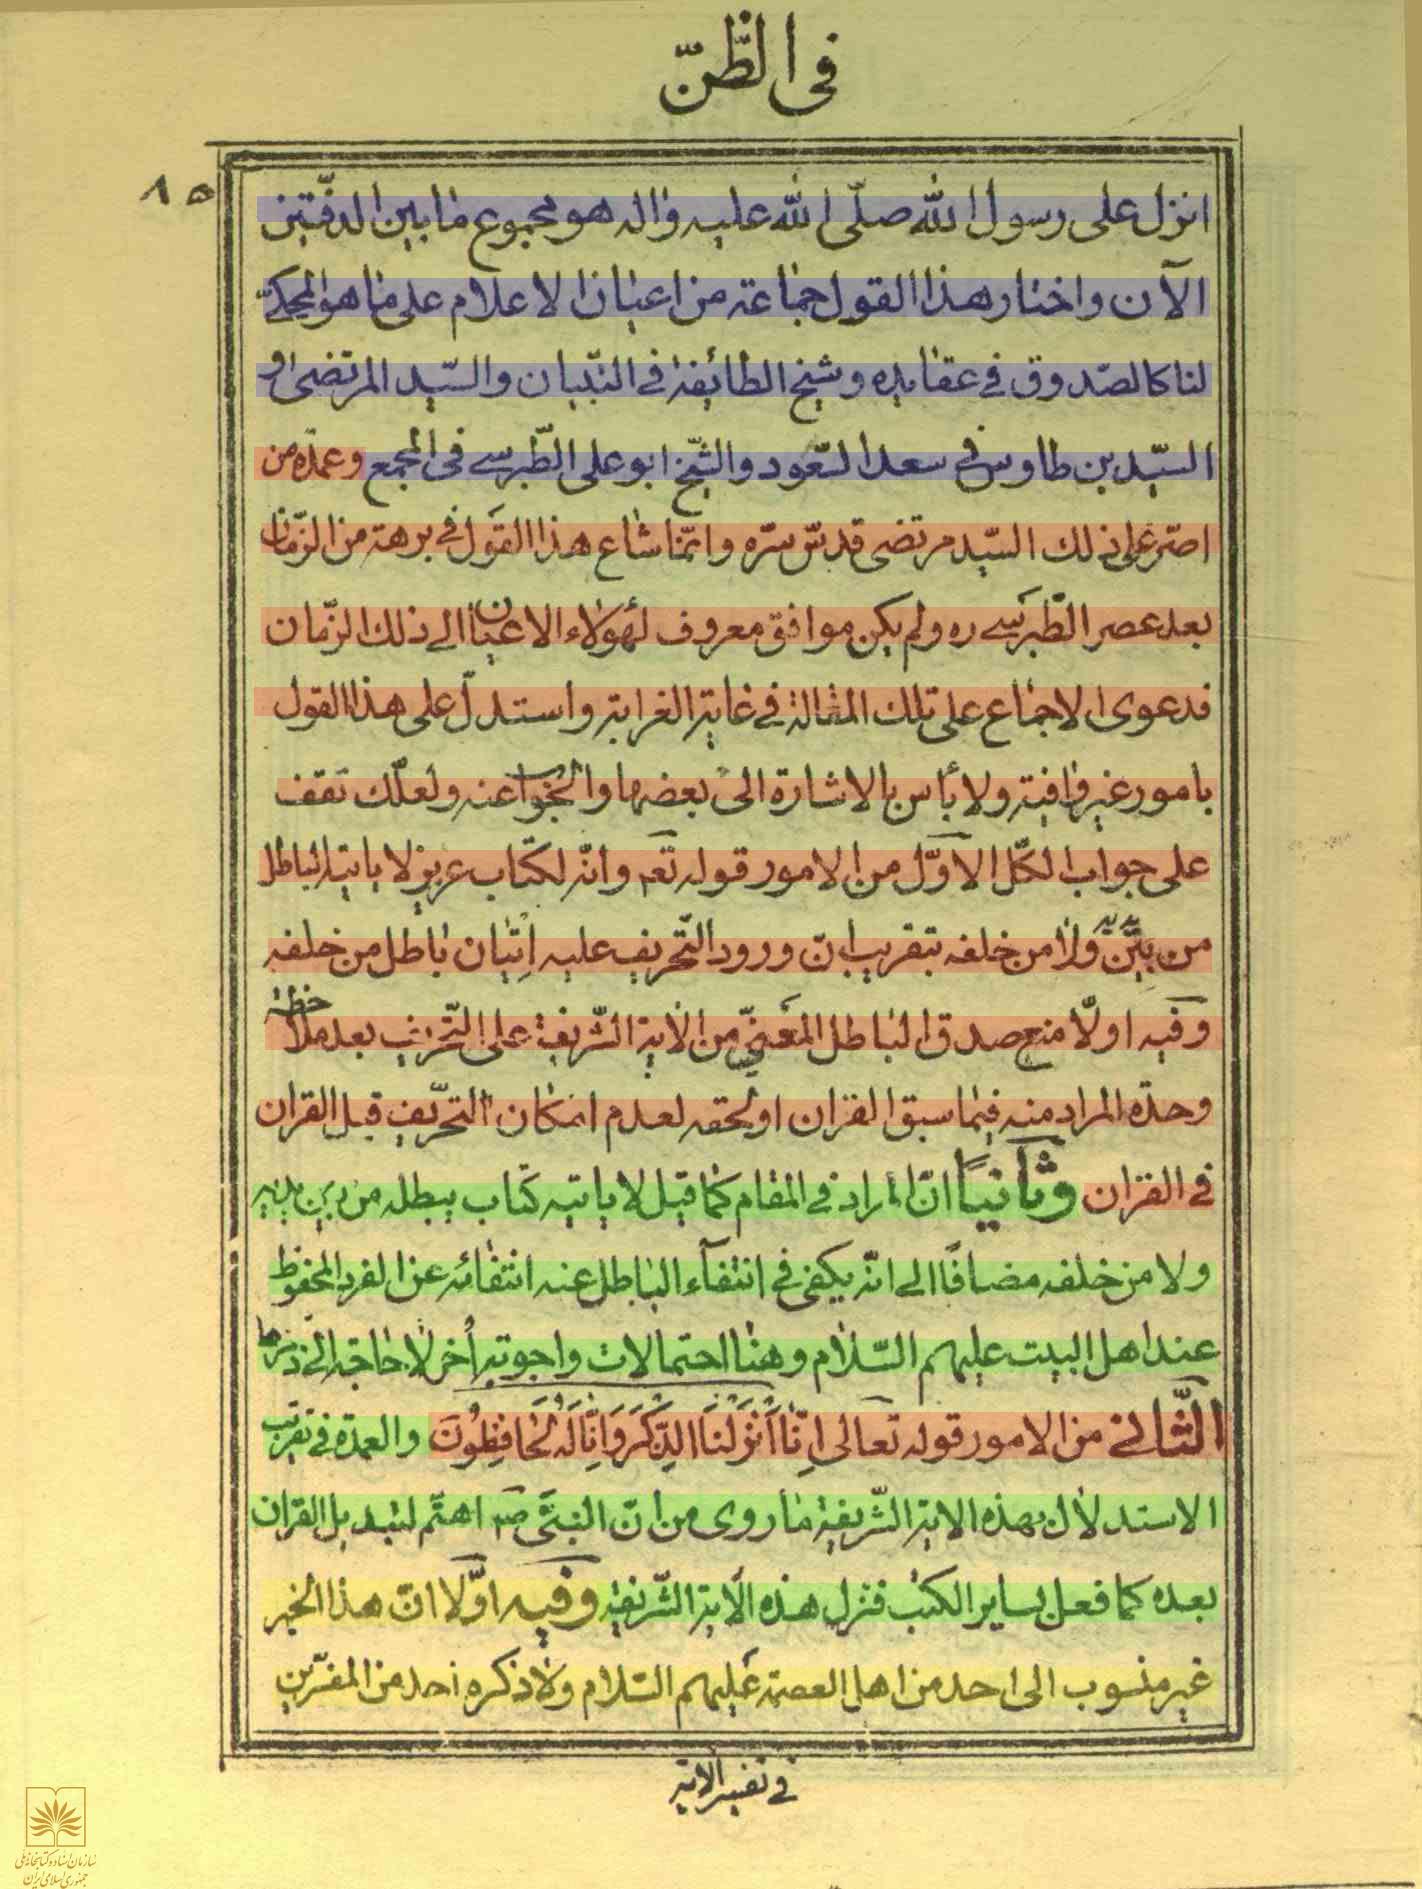 فى الظّنّ
٨٥
انزل على رسول الله صلّى الله عليه واله هو مجموع ما بين الدفّتين
الآن واختار هذا القول جماعة من اعيان الاعلام على ما هو المحكىّ
لنا كالصّدوق في عقايده وشيخ الطائفة في التبيان والسّيد المرتضى و
السّيد بن طاوس في سعد السّعود والشّيخ ابو على الطّبرسى فى المجمع وعمدة من
اصرّ على ذلك السّيد مرتضى قدسّ سرّه وانّما شاع هذا القول في برهة من الزّمان
بعد عصر الطّبرسى ره ولم يكن موافق معروف لهؤلاء الاعيان الى ذلك الزّمان
فدعوى الاجماع على تلك المقالة في غاية الغرابة واستدلّ على هذا القول
بامور غير وافية ولا بأس بالاشارة الى بعضها والجواب عنه ولعلّك تقف
على جواب الكلّ الاوّل من الامور قوله تعم وانّه لكتاب عزيز لا ياتيه الباطل
من بين يديه ولا من خلفه بتقريب انّ ورود التّحريف عليه اتيان باطل من خلفه
وفيه اولّا منع صدق الباطل المعنىّ من الاية الشّريفة على التّحريف بعد ملاحظة
وحدة المراد منه فيما سبق القران او لحقه لعدم امكان التحرّيف قبل القران
في القران وثانياً انّ المراد في المقام كما قيل لا ياتيه كتاب يبطله من بين يديه
ولا من خلفه مضافًا الى انّه يكفى في انتفاء الباطل عنه انتفائه عن الفرد المحفوظ
عند اهل البيت عليهم السّلام وهنا احتمالات واجوبة أخر لا حاجة الى ذكرها
الثّانى من الامور قوله تعالى اِنّا اَنْزَلنَا الذِّكْرَ وَاِنّا لَهُ لَحافِظُونَ والعمدة في تقريب
الاستدلال بهذه الاية الشّريفة ما روى من انّ النبىّ صم اهتّم لتبديل القران
بعده كما فعل بساير الكتب فنزل هذه الاية الشّريفة وفيه اوّلا انّ هذا الخبر
غير منسوب الى احد من اهل العصمة عليهم السّلام ولا ذكره احد من المفسّرين
في تفسير الاية
سازمان اسناد و کتابخانه ملی
جمهوری اسلامی ایران